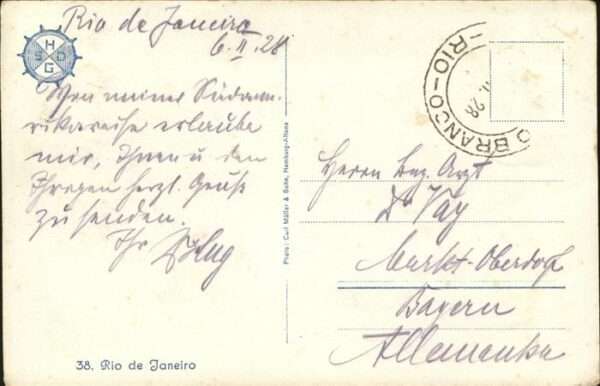 Rio de Janeiro
6.II.28
H
S D
G
Von meiner Südam-
rikareise erlaube
mir, Ihnen u den
Ihrigen herzl. Grüße
zu senden.
Ihr
38. Rio de Janeiro
Photo: Carl Müller & Sohn, Hamburg-Altona
BRANCO - RIO -
28
Herrn Bez. Arzt
Dr
Markt-Oberdorf
Bayern
Allemanha